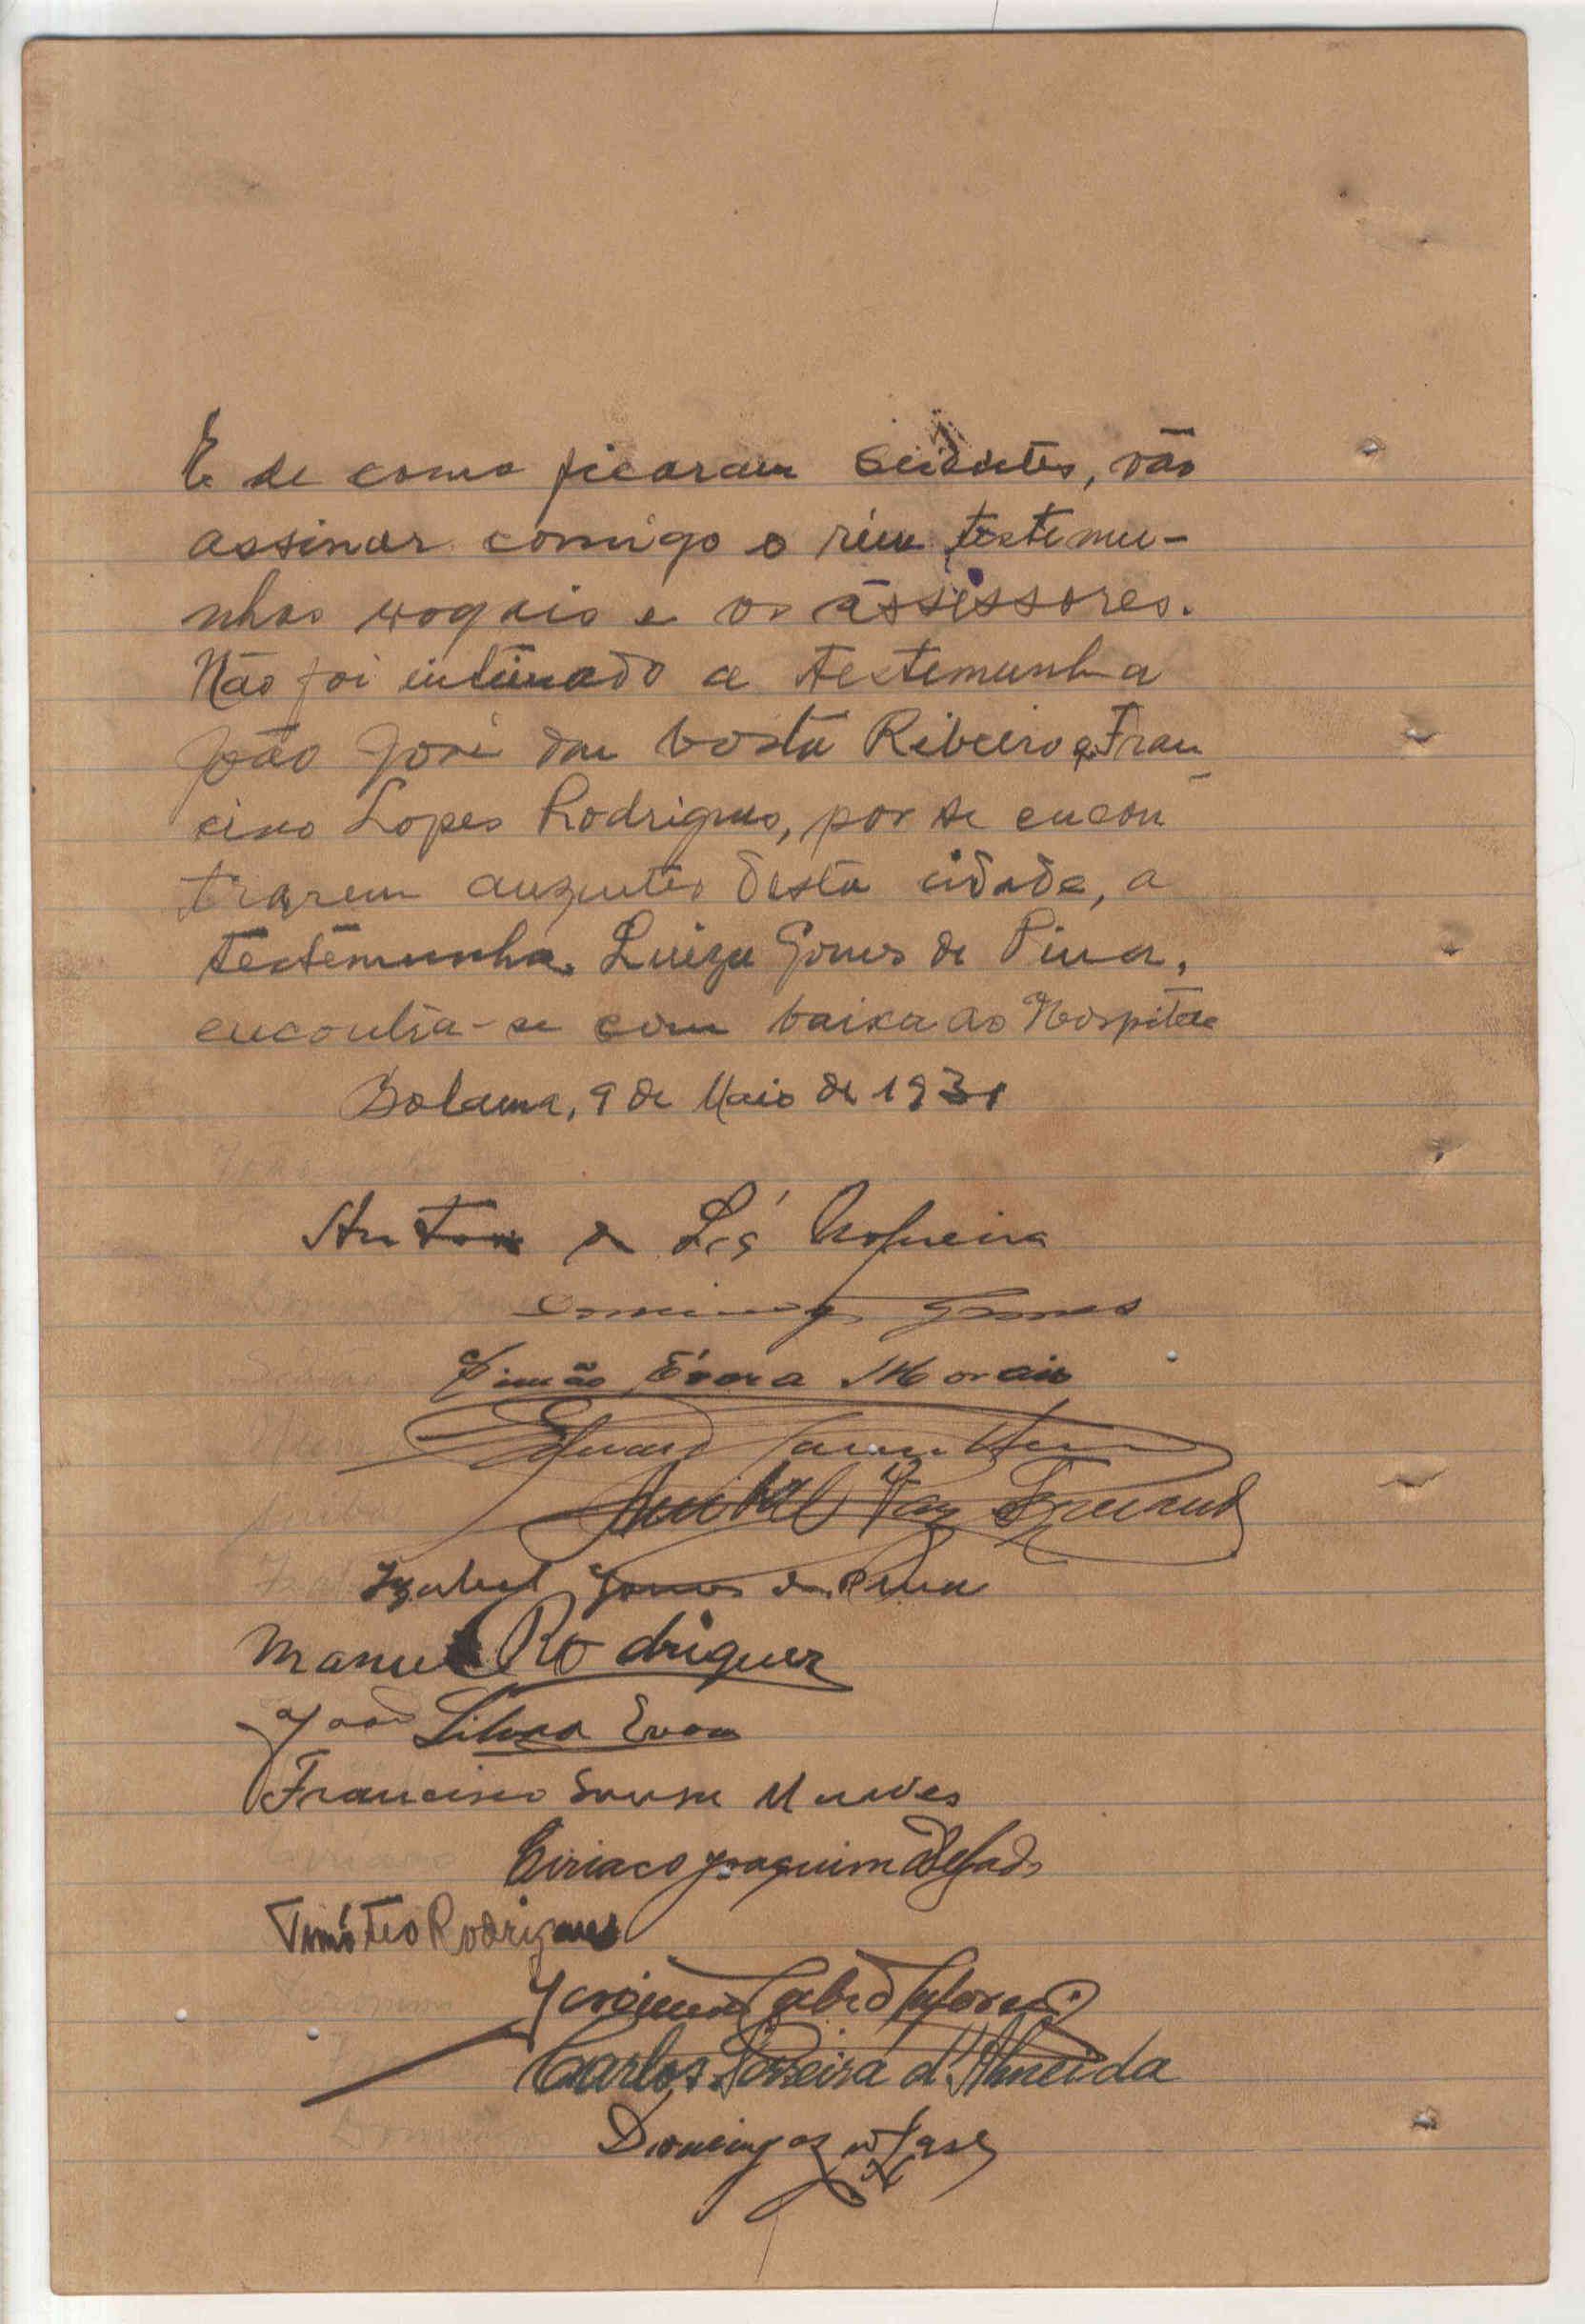 E de como ficaram scientes, vão
assinar comigo o réu testemu-
nhas vogais e os assessores.
Não foi intimado a testemunha
João José da Costa Ribeiro e Fran
cisco Lopes Rodrigues, por se encon
trarem auzentes desta cidade, a
testemunha Luiza Gomes de Pina,
encontra-se com baixa ao Hospital
Bolama, 9 de Maio de 1931
de Sá Nogueira
Domingos Gomes
Simão Évora Morais
Anibal
Izabel Gomes de Pina
Manuel Rodriguez
João Silva
Francisco
Ciriaco Joaquim
Timóteo Rodrigues
Carlos Pereira d'Almeida
Domingos